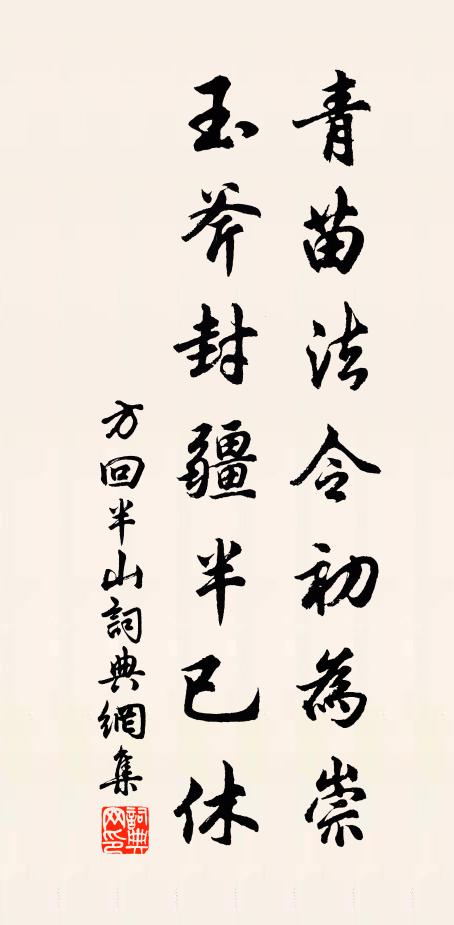 青苗法令初為崇
玉斧封疆半已休
方回半山詞典網集
詞典
网印